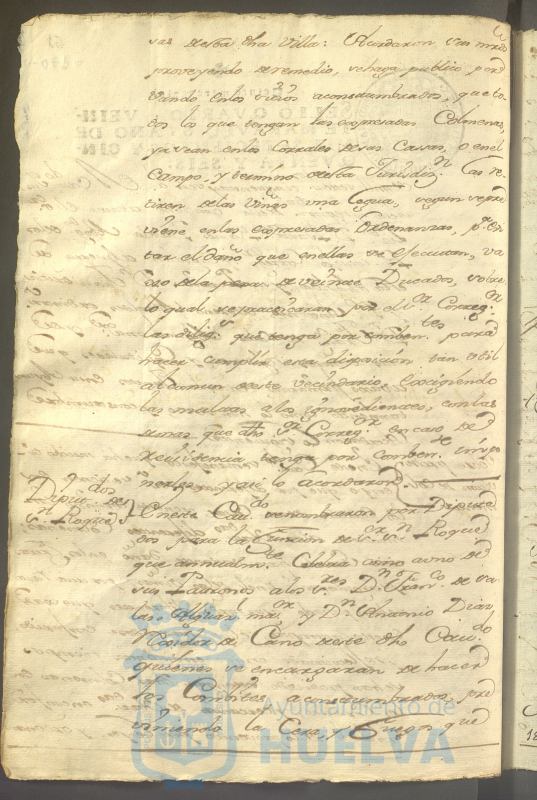 vas de esta dha Villa: Acordaron sus mrds
proveyendo de remedio, se haga publico por
Vando en los sitios acostumbrados, que to-
dos lo que tengan las expresadas Colmenas,
ya sean en los Corrales de sus Casas, o en el
Campo, y termino de esta Jurisdizn. las re-
tiren de las Viñas una Legua, segun se pre
viene en las expresadas Ordenanzas, pa. Evi
tar el daño que en ellas se Executan, va
xo de la pena de veinte Ducados, sobre
lo qual se practicaran por el Sr. Corregor.
las diligs. que tenga por combentes. para
hacer cumplir esta disposicion tan util
al comun de este vecindario, Exsigiendo
las multas a los ynovedientes, con las
demas que dho Sr. Corregor. en caso de
Reincidencia tenga por comben. imponerles, y asi lo acordaron
Diputdos. de
Sn. Roque
En este Cavdo. se nombraron por Diputa
dos para la Funcion de Sr. Sn. Roque
que annualmte. Celebra como a uno de
sus Patronos a los Sres. Dn. Franco. de Sa
las Alguacl. mor. y Dn. Antonio Diaz,
Rexidor de Cano de este dho Cavdo.
quienes se encargaran de hacer
los Combites acostumbrados, pre
viniendo la Cera, y Fuegos que
Ayuntamiento de
HUELVA